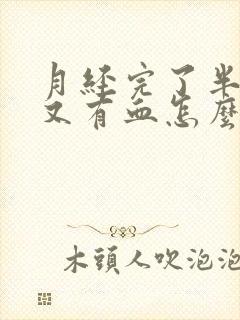 月經完了半
又有血怎麼
木頭人吹泡泡